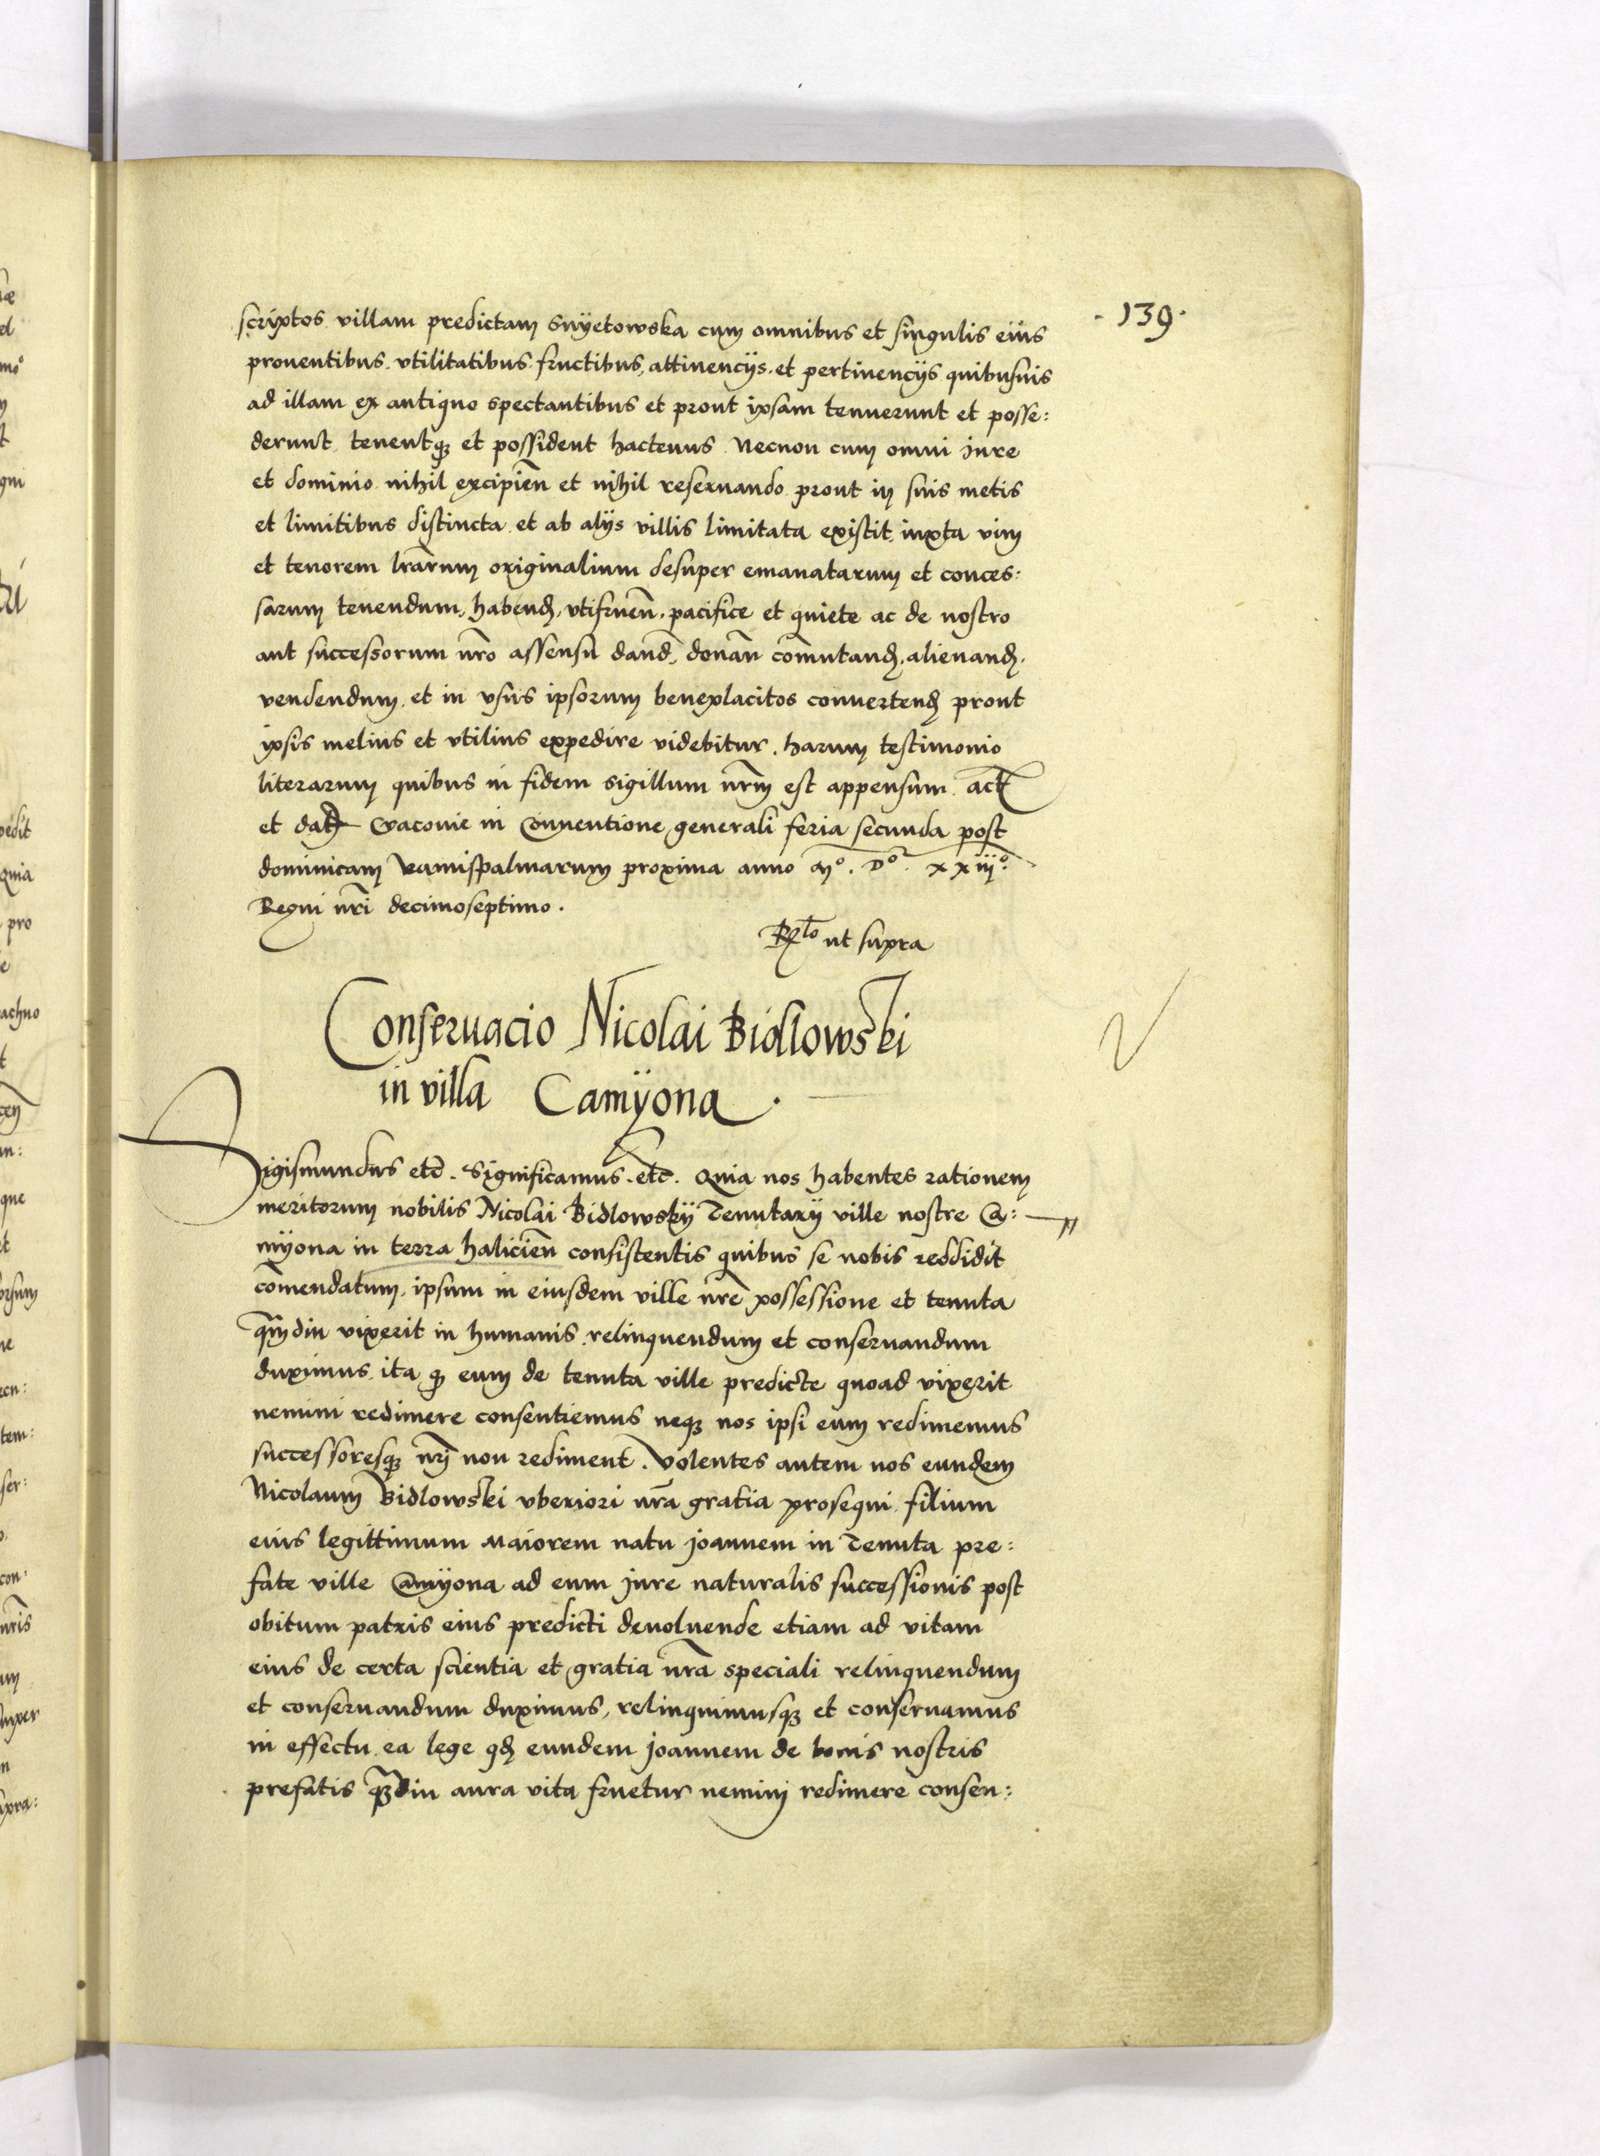 · 139 ·
scriptos villam predictam Snÿetowska cum omnibus et singulis eius
prouentibus. vtilitatibus fructibus, attinencÿs. et pertinencÿs quibusuis
ad illam ex antiquo spectantibus et prout ipsam tenuerunt et posse:
derunt tenentqȝ et possident hactenus Necnon cum omni jure
et dominio nihil excipień et nihil reseruando prout in suis metis
et limitibus distincta et ab alÿs villis limitata existit iuxta vim
et tenorem lrārum originalium desuper emanatarum et conces:
sarum tenendum, habenđ, vtifrueñ, pacifice et quiete ac de nostro
aut successorum nr̄o assensu danđ, donañ com̄utanđ, alienanđ.
vendendum et in vsus ipsorum beneplacitos conuertenđ prout
ipsis melius et vtilius expedire videbitur. harum testimonio
literarum quibus in fidem sigillum nr̄m est appensum act
et dat Cracouie in Conuentione generali feria secunda post
dominicam Ramispalmarum proxima anno Mº. Dº. xxiijº.
Regni nr̄i decimoseptimo.
Rlto ut supra
Conseruacio Nicolai Bidlowski
in villa Camÿona.
Sigismundus etc. Significamus. etc. Quia nos habentes rationem
meritorum nobilis Nicolai Bidlowskÿ Tenutarÿ ville nostre Ca:
mÿona in terra halicień consistentis quibus se nobis reddidit
com̄endatum, ipsum in eiusdem ville nr̄e possessione et tenuta
qm̄diu vixerit in humanis relinquendum et conseruandum
duximus ita ꝙ eum de tenuta ville predicte quoad vixerit
nemini redimere consentiemus neqȝ nos ipsi eum redimemus
successoresqȝ nr̄j non rediment. Volentes autem nos eundem
Nicolaum Bidlowski vberiori nr̄a gratia prosequi filium
eius legittimum Maiorem natu joannem in Tenuta pre:
fate ville Camÿona ad eum jure naturalis successionis post
obitum patris eius predicti deuoluende etiam ad vitam
eius de certa scientia et gratia nr̄a speciali relinquendum
et conseruandum duximus, relinquimusqȝ et conseruamus
in effectu ea lege qđ eundem joannem de bonis nostris
prefatis qȝdiu aura vita fruetur nemini redimere consen: